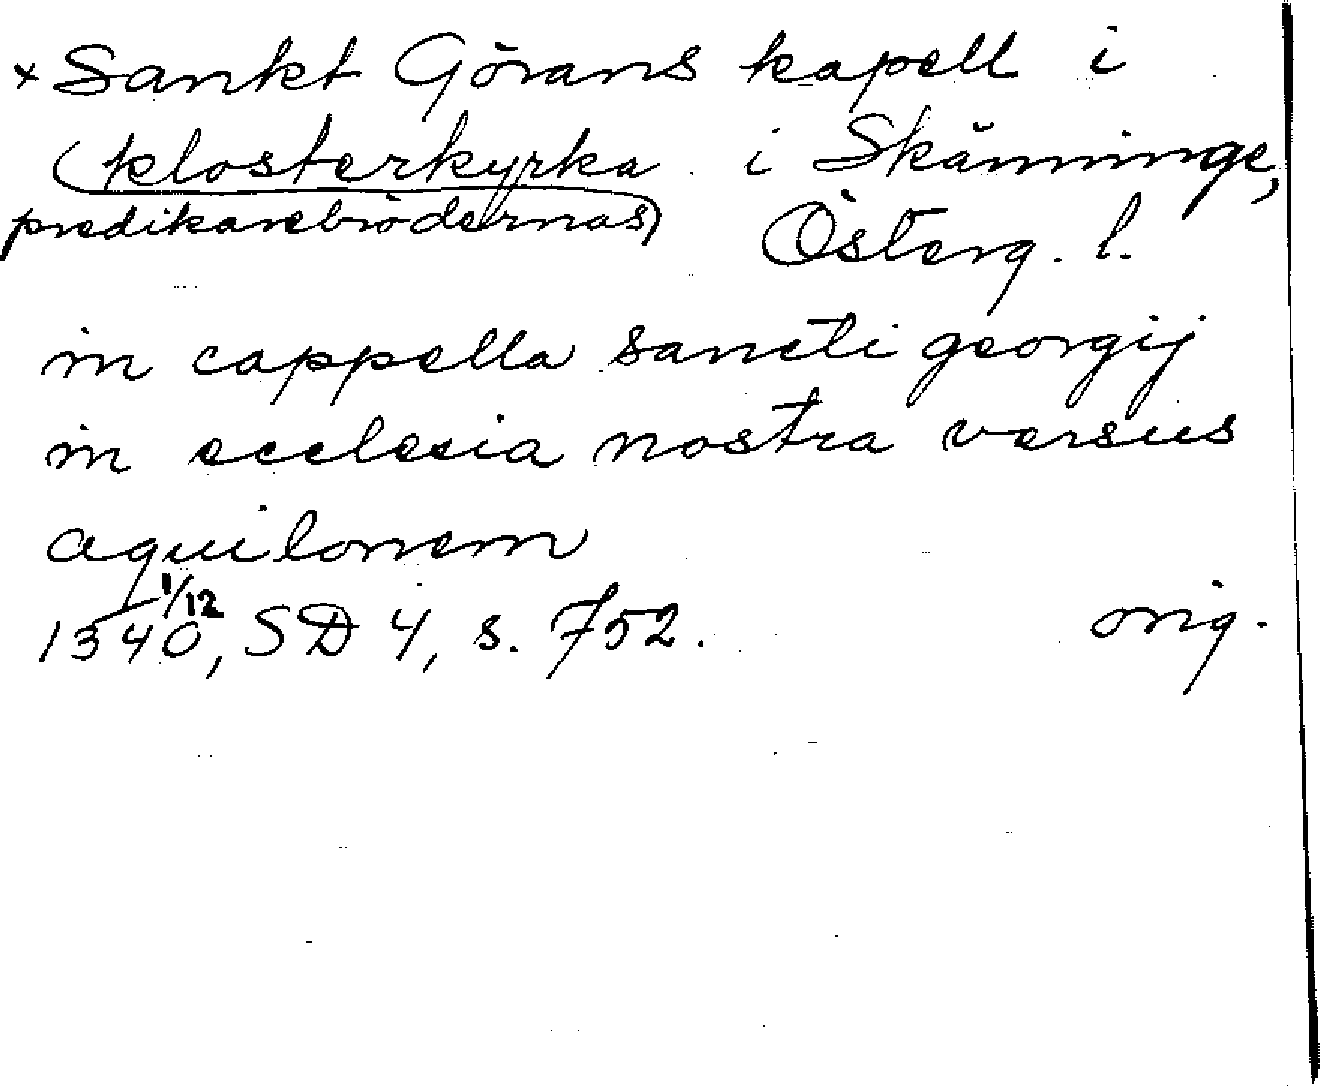 × Sankt Görans kapell i
klosterkyrka i Skänninge,
predikarebrödernas
Österg. l.
in cappella sancti georgij
in ecclecia nostra versus
aquilonem
1340 1/12, SD 4, s. 752. orig.